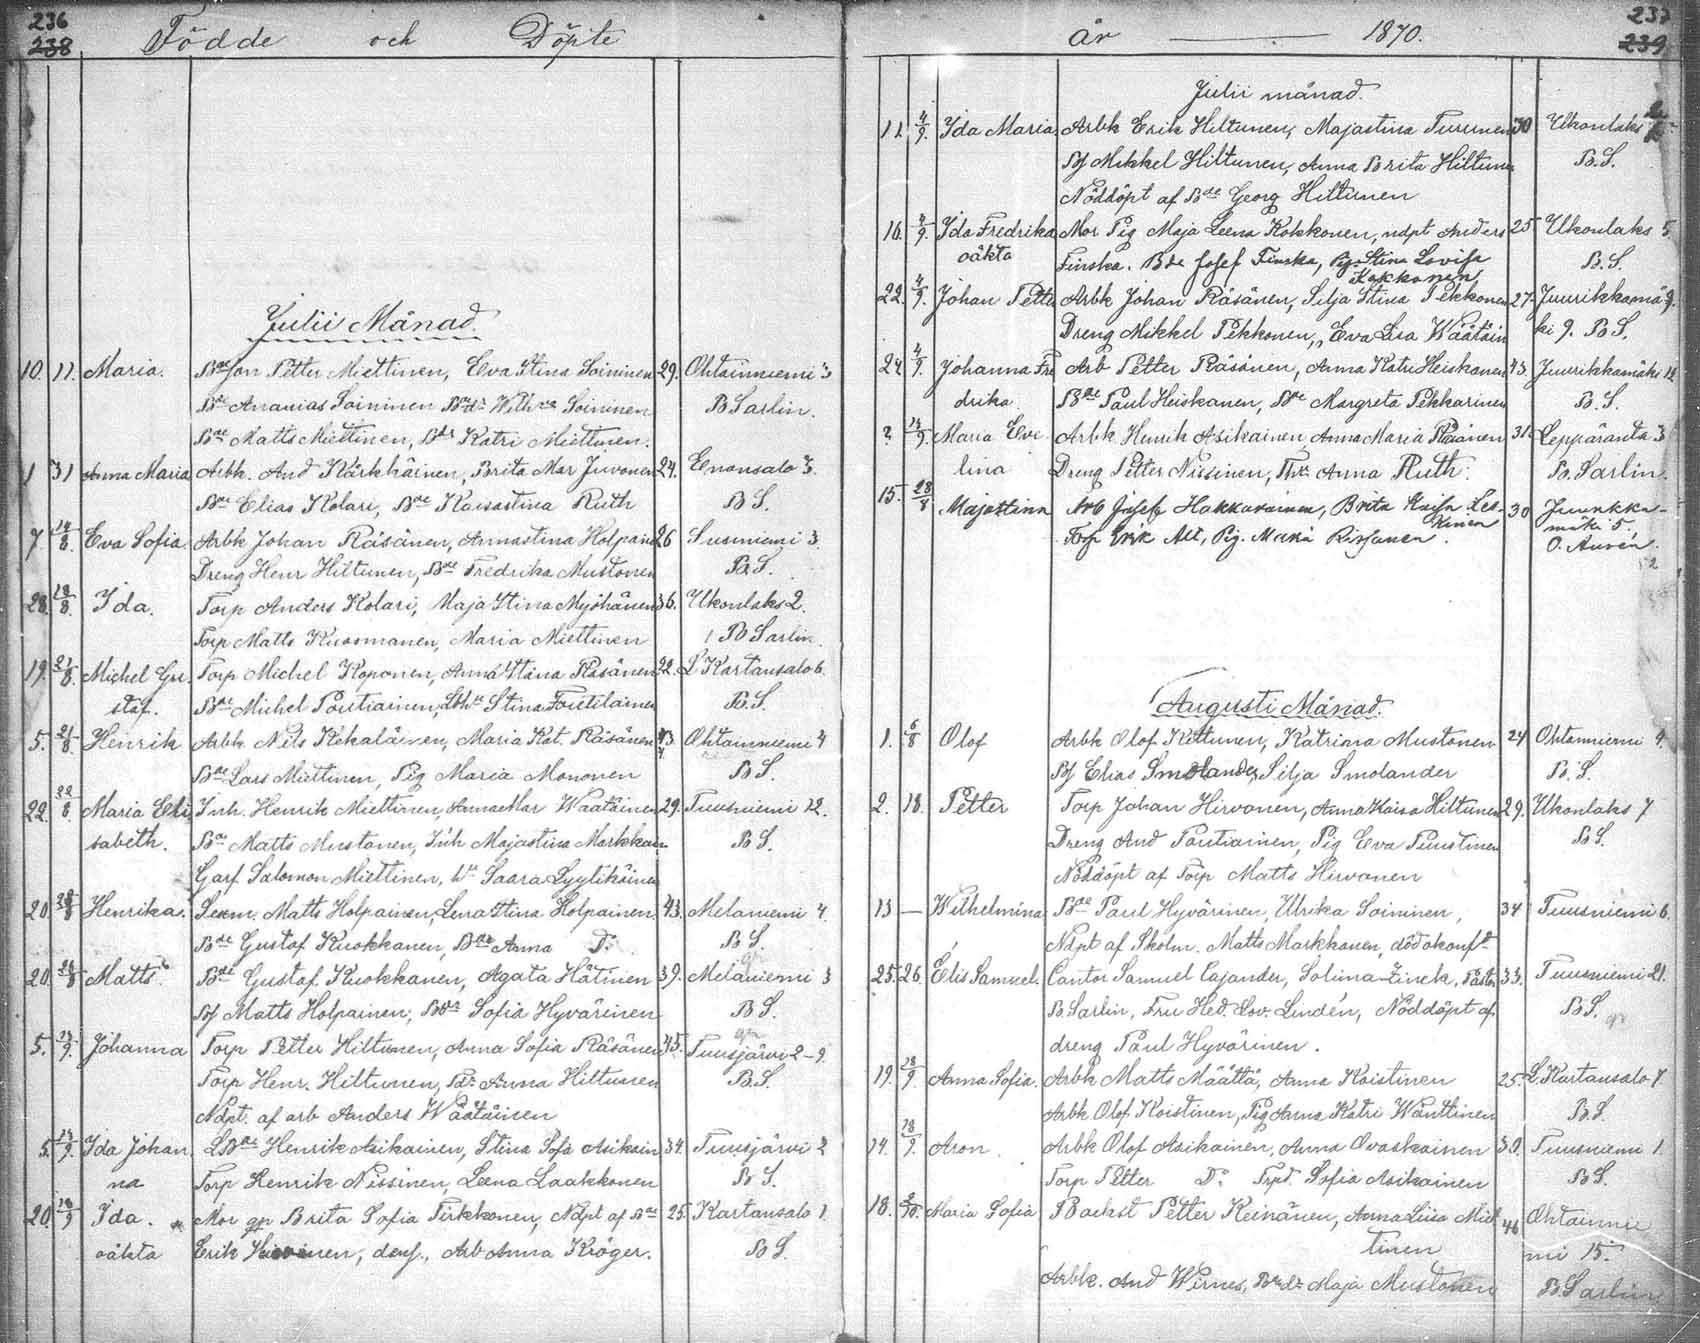 236
238
Födde och Döpte
Julii Månad.
10. 11. Maria. Bde Jon Petter Miettinen, Eva Stina Soininen 29. Ohtainniemi 3
Bde Ananias Soininen Soininen B Sarlin.
Bde Matts Miettinen, Katri Miettinen.
1 31 Anna Maria Arbk. And Kärkkäinen, Brita Mar Juvonen 24. Enonsalo 3.
Bde Elias Kolari, Bde Kaisastina Ruth B S.
7. 14/8. Eva Sofia Arbk Johan Räsänen, Annastina Holpain 26 Susiniemi 3.
Dreng Henr Hiltunen, Bde Fredrika Mustonen B.S.
28. Ida. Torp Anders Kolari, Maja Stina Myöhänen 36. Ukonlaks 2.
Torp Matts Kuosmanen, Maria Miettinen B Sarlin
19. 21/8. Michel Gu- Torp Michel Koponen, Anna Stina Räsänen 22. L Kartansalo 6
staf. Bde Michel Poutiainen, Stina Toutilainen B.S.
5. 21/8 Henrik Arbk Nils Kekäläinen, Maria Kat. Räsänen 43. Ohtainniemi 4
Bde Lars Miettinen, Pig Maria Mononen B S.
22. 22/8 Maria Eli Inh. Henrik Miettinen, Anna Mar Wäätäinen 29. Tuusniemi 12.
sabeth. Bde Matts Mustonen, Inh Majastina Markkain B S.
Garf Salomon Miettinen, Saara Lyytikäinen
20. 28/8 Henrika. Matts Holpainen, Lena Stina Holpainen 43. Melaniemi 4.
Bde Gustaf Kuokkanen, Bde Anna Do B S.
20. 28/8 Matts Bde Gustaf Kuokkanen, Agata Hätinen 39. Melaniemi 3
Bf Matts Holpainen, Sofia Hyvärinen B S.
5. Johanna Torp Petter Hiltunen, Anna Sofia Räsänen 45. Tuusjärvi 2-9.
Torp Henr. Hiltunen, Anna Hiltunen B.S.
Ndpt. af arb Anders Wäätäinen
5. Ida Johan L.Bde Henrik Asikainen, Stina Sofia Asikain 34. Tuusjärvi 2
na Torp Henrik Nissinen, Leena Laakkonen B S.
20. Ida. Mor gp Brita Sofia Tirkkonen, Ndpt af Bde 25. Kartansalo 1
oäkta Erik, denf., Arb Anna Kröger. B S.
237
239
år 1870.
Julii månad.
11. 4/9. Ida Maria Arbk Erik Hiltunen, Majastina Turunen 30 Ukonlaks
Bf Mikkel Hiltunen, Anna Brita Hiltunen B.S.
Nöddöpt af Bde Georg Hiltunen
16. 4/9. Ida Fredrika Mor Pig Maja Leena Kokkonen, ndpt Anders 25 Ukonlaks 5.
oäkta Finska. Bde Josef Finska, Pig Stina Lovisa B.S.
Kokkonen
22. 4/9. Johan Petter Arbk Johan Räsänen, Silja Stina Pekkonen 27. Juurikkamä-
Dreng Mikkel Pekkonen, Eva Lisa Wäätäin ki 9. B S.
24. 4/9. Johanna Fre Arb Petter Räsänen, Anna Katri Heiskanen 43. Juurikkamäki 12
drika Bde Paul Heiskanen, Bde Margreta Pekkarinen B.S.
2. Maria Eve- Arbk Henrik Asikainen, Anna Maria Räsänen 31. Leppäranta 3
lina Dreng Petter Nissinen, Anna Ruth. B. Sarlin.
15. 28/8 Majastina Arb Josef Hakkarainen, Brita Kaisa Les- 30 Juurikka-
kinen mäki 5.
Torp Erik Alt, Pig. Maria Rissanen. O. Aurén.
Augusti Månad.
1. 6/8 Olof Arbk Olof Kettunen, Katrina Mustonen 24 Ohtainniemi 9.
Bf Elias Smolander, Silja Smolander B.S.
2. 18. Petter Torp Johan Hirvonen, Anna Kaisa Hiltunen 29. Ukonlaks 7
Dreng And Poutiainen, Pig Eva Puustinen B S.
Nöddöpt af Torp Matts Hirvonen
13 — Wilhelmina Bde Paul Hyvärinen, Ulrika Soininen, 34 Tuusniemi 6.
Ndpt af Skolm. Matts Markkanen, död okonft
25. 26. Elis Samuel. Cantor Samuel Cajander, Solima Zinck, Pastor 33. Tuusniemi 21.
B. Sarlin, Fru Hed. Lov. Lindén, Nöddöpt af B S.
dreng Paul Hyvärinen.
19. 18/9 Anna Sofia Arbk Matts Määttä, Anna Koistinen 25. L. Kartansalo 7.
Arbk Olof Koistinen, Pig Anna Katri Wänttinen B S
14. 18/9. Aron Arbk Olof Asikainen, Anna Ovaskainen 30. Tuusniemi 1.
Torp Petter Do Sofia Asikainen B S.
18. 2/10. Maria Sofia Backst Petter Keinänen, Anna Liisa Miet 46 Ohtainnie
tinen mi 15.
Arbk. And Wirnes, Maja Mustonen B. Sarlin